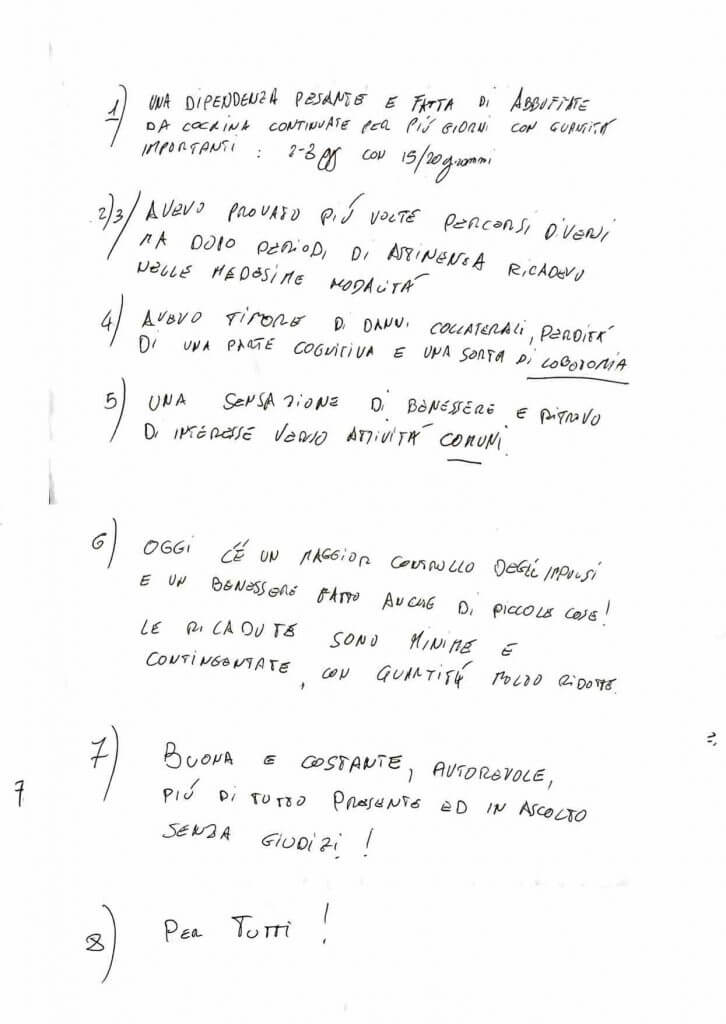 1) UNA DIPENDENZA PESANTE E FATTA DI ABBUFFATE
DA COCAINA CONTINUATE PER PIÚ GIORNI CON QUANTITÁ
IMPORTANTI : 2-3 gg CON 15/20 grammi
2)3) AVEVO PROVATO PIÚ VOLTE PERCORSI DIVERSI
MA DOPO PERIODI DI ASTINENZA RICADEVO
NELLE MEDESIME MODALITÁ
4) AVEVO TIMORE DI DANNI COLLATERALI, PERDITÁ
DI UNA PARTE COGNITIVA E UNA SORTA DI LOBOTOMIA
5) UNA SENSAZIONE DI BENESSERE E RITROVO
DI INTERESSE VERSO ATTIVITÁ COMUNI.
6) OGGI C'É UN MAGGIOR CONTROLLO DEGLI IMPULSI
E UN BENESSERE FATTO ANCHE DI PICCOLE COSE!
LE RICADUTE SONO MINIME E
CONTINGENTATE, CON QUANTITÁ MOLTO RIDOTTE.
7) BUONA E COSTANTE, AUTOREVOLE,
PIÚ DI TUTTO PRESENTE ED IN ASCOLTO
7
SENZA GIUDIZI!
8) PER TUTTI!